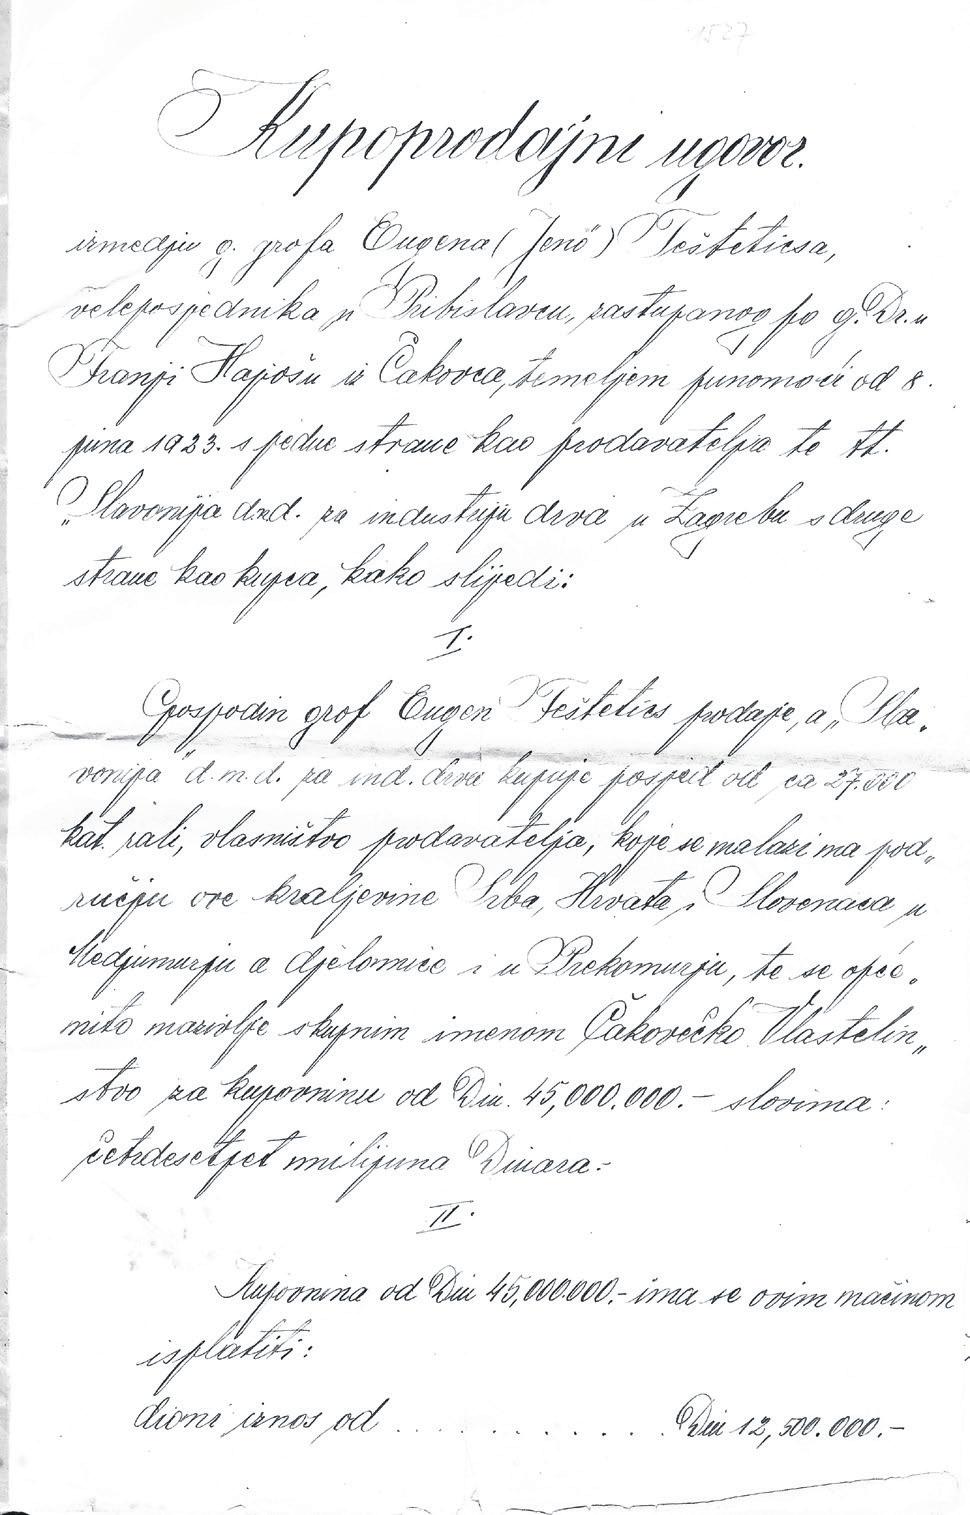 1527
Kupoprodajni ugovor.
izmedju g. grofa Eugena (Jenö) Fešteticsa,
veleposjednika u Pribislavcu, zastupanog po g. Dr.u
Franji Hajošu iz Čakovca, temeljem punomoći od 8.
juna 1923. s jedne strane kao prodavatelja te tt.
„Slavonija d.d. za industriju drva u Zagrebu s druge
strane kao kupca, kako slijedi:
I.
Gospodin grof Eugen Feštetics prodaje, a „Sla„
vonija" d.n.d. za ind. drva kupuje posjed od ca 27.000
kat. rali, vlasništvo prodavatelja, koje se nalazi na pod„
ručju ove kraljevine Srba, Hrvata i Slovenaca u
Medjumurju a djelomice i u Prekomurju, te se opće„
nito nazivlje skupnim imenom Čakovečko Vlastelin„
stvo za kupovninu od Din. 45,000.000.- slovima:
četrdesetpet milijuna Dinara.-
II.
Kupovnina od Din 45,000.000.- ima se ovim načinom
isplatiti:
dioni iznos od . . . . . . . . . . . Din 12,500.000.-